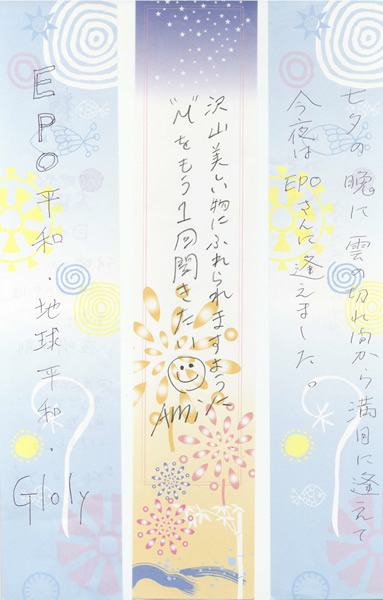 七夕の晩に雲の切れ間から満月に逢えて
今夜はEPOさんに逢えました。
沢山美しい物にふれられますように
"M"をもう1回聞きたい
AMi
EPO平和・地球平和・
Gloly